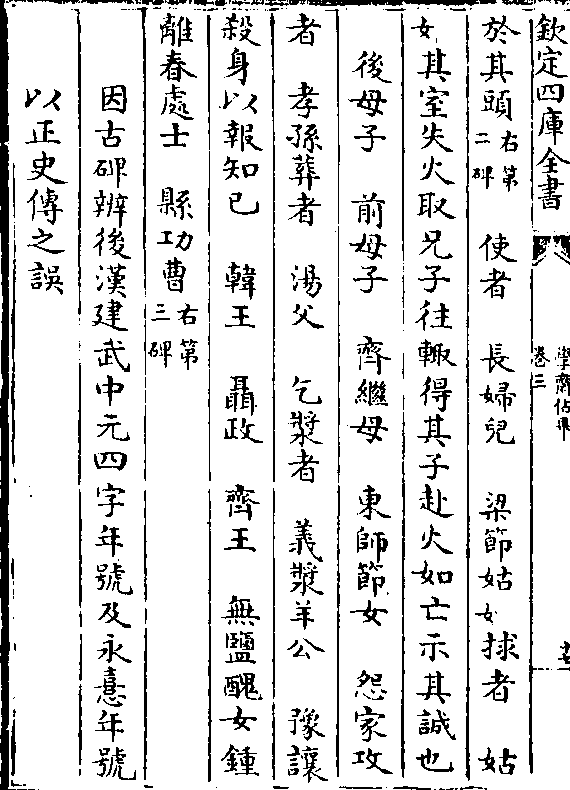 欽定四庫全書
學齋佔畢
卷三
於其頭右第二碑 使者 長婦兒 梁節姑女捄者 姑
女其室失火取兄子往輙得其子赴火如亡示其誠也
後母子 前母子 齊繼母 東師節女 怨家攻
者 孝孫葬者 湯父 乞漿者 義漿羊公 豫讓
殺身以報知已 韓王 聶政 齊王 無鹽醜女鍾
離春處士 縣功曹右第三碑
因古碑辨後漢建武中元四字年號及永憙年號
以正史傳之誤